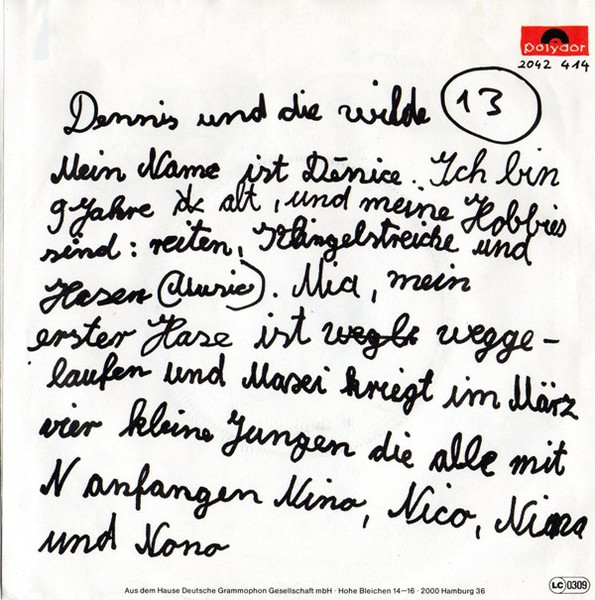 polydor
2042 414
Dennis und die wilde 13
Mein Name ist Dēnice. Ich bin
9 Jahre alt, und meine Hobbies
sind: reiten, Klingelstreiche und
Hasen (Music). Mia, mein
erster Hase ist wegli wegge-
laufen und Masei kriegt im März
vier kleine Jungen die alle mit
N anfangen Nino, Nico, Niana
und Nono
Aus dem Hause Deutsche Grammophon Gesellschaft mbH · Hohe Bleichen 14–16 · 2000 Hamburg 36
LC 0309